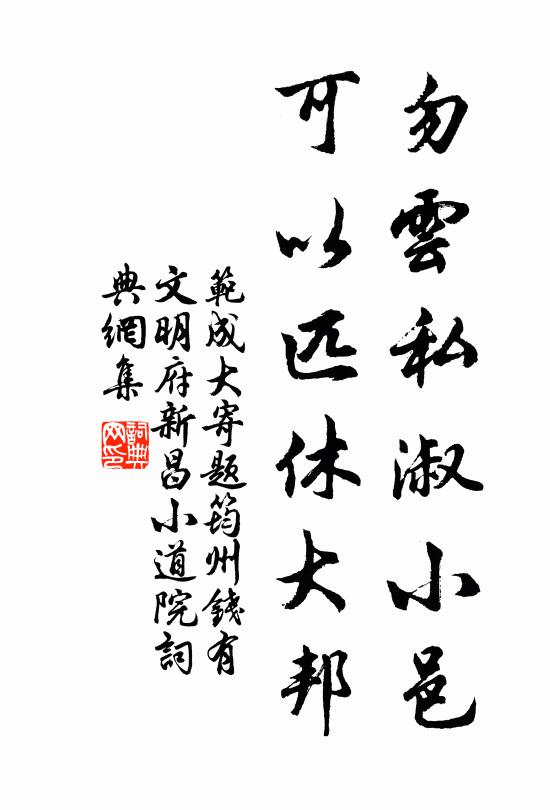 勿雲私淑小邑
可以匹休大邦
範成大寄題筠州錢有
文明府新昌小道院詞
典網集
詞典
网印